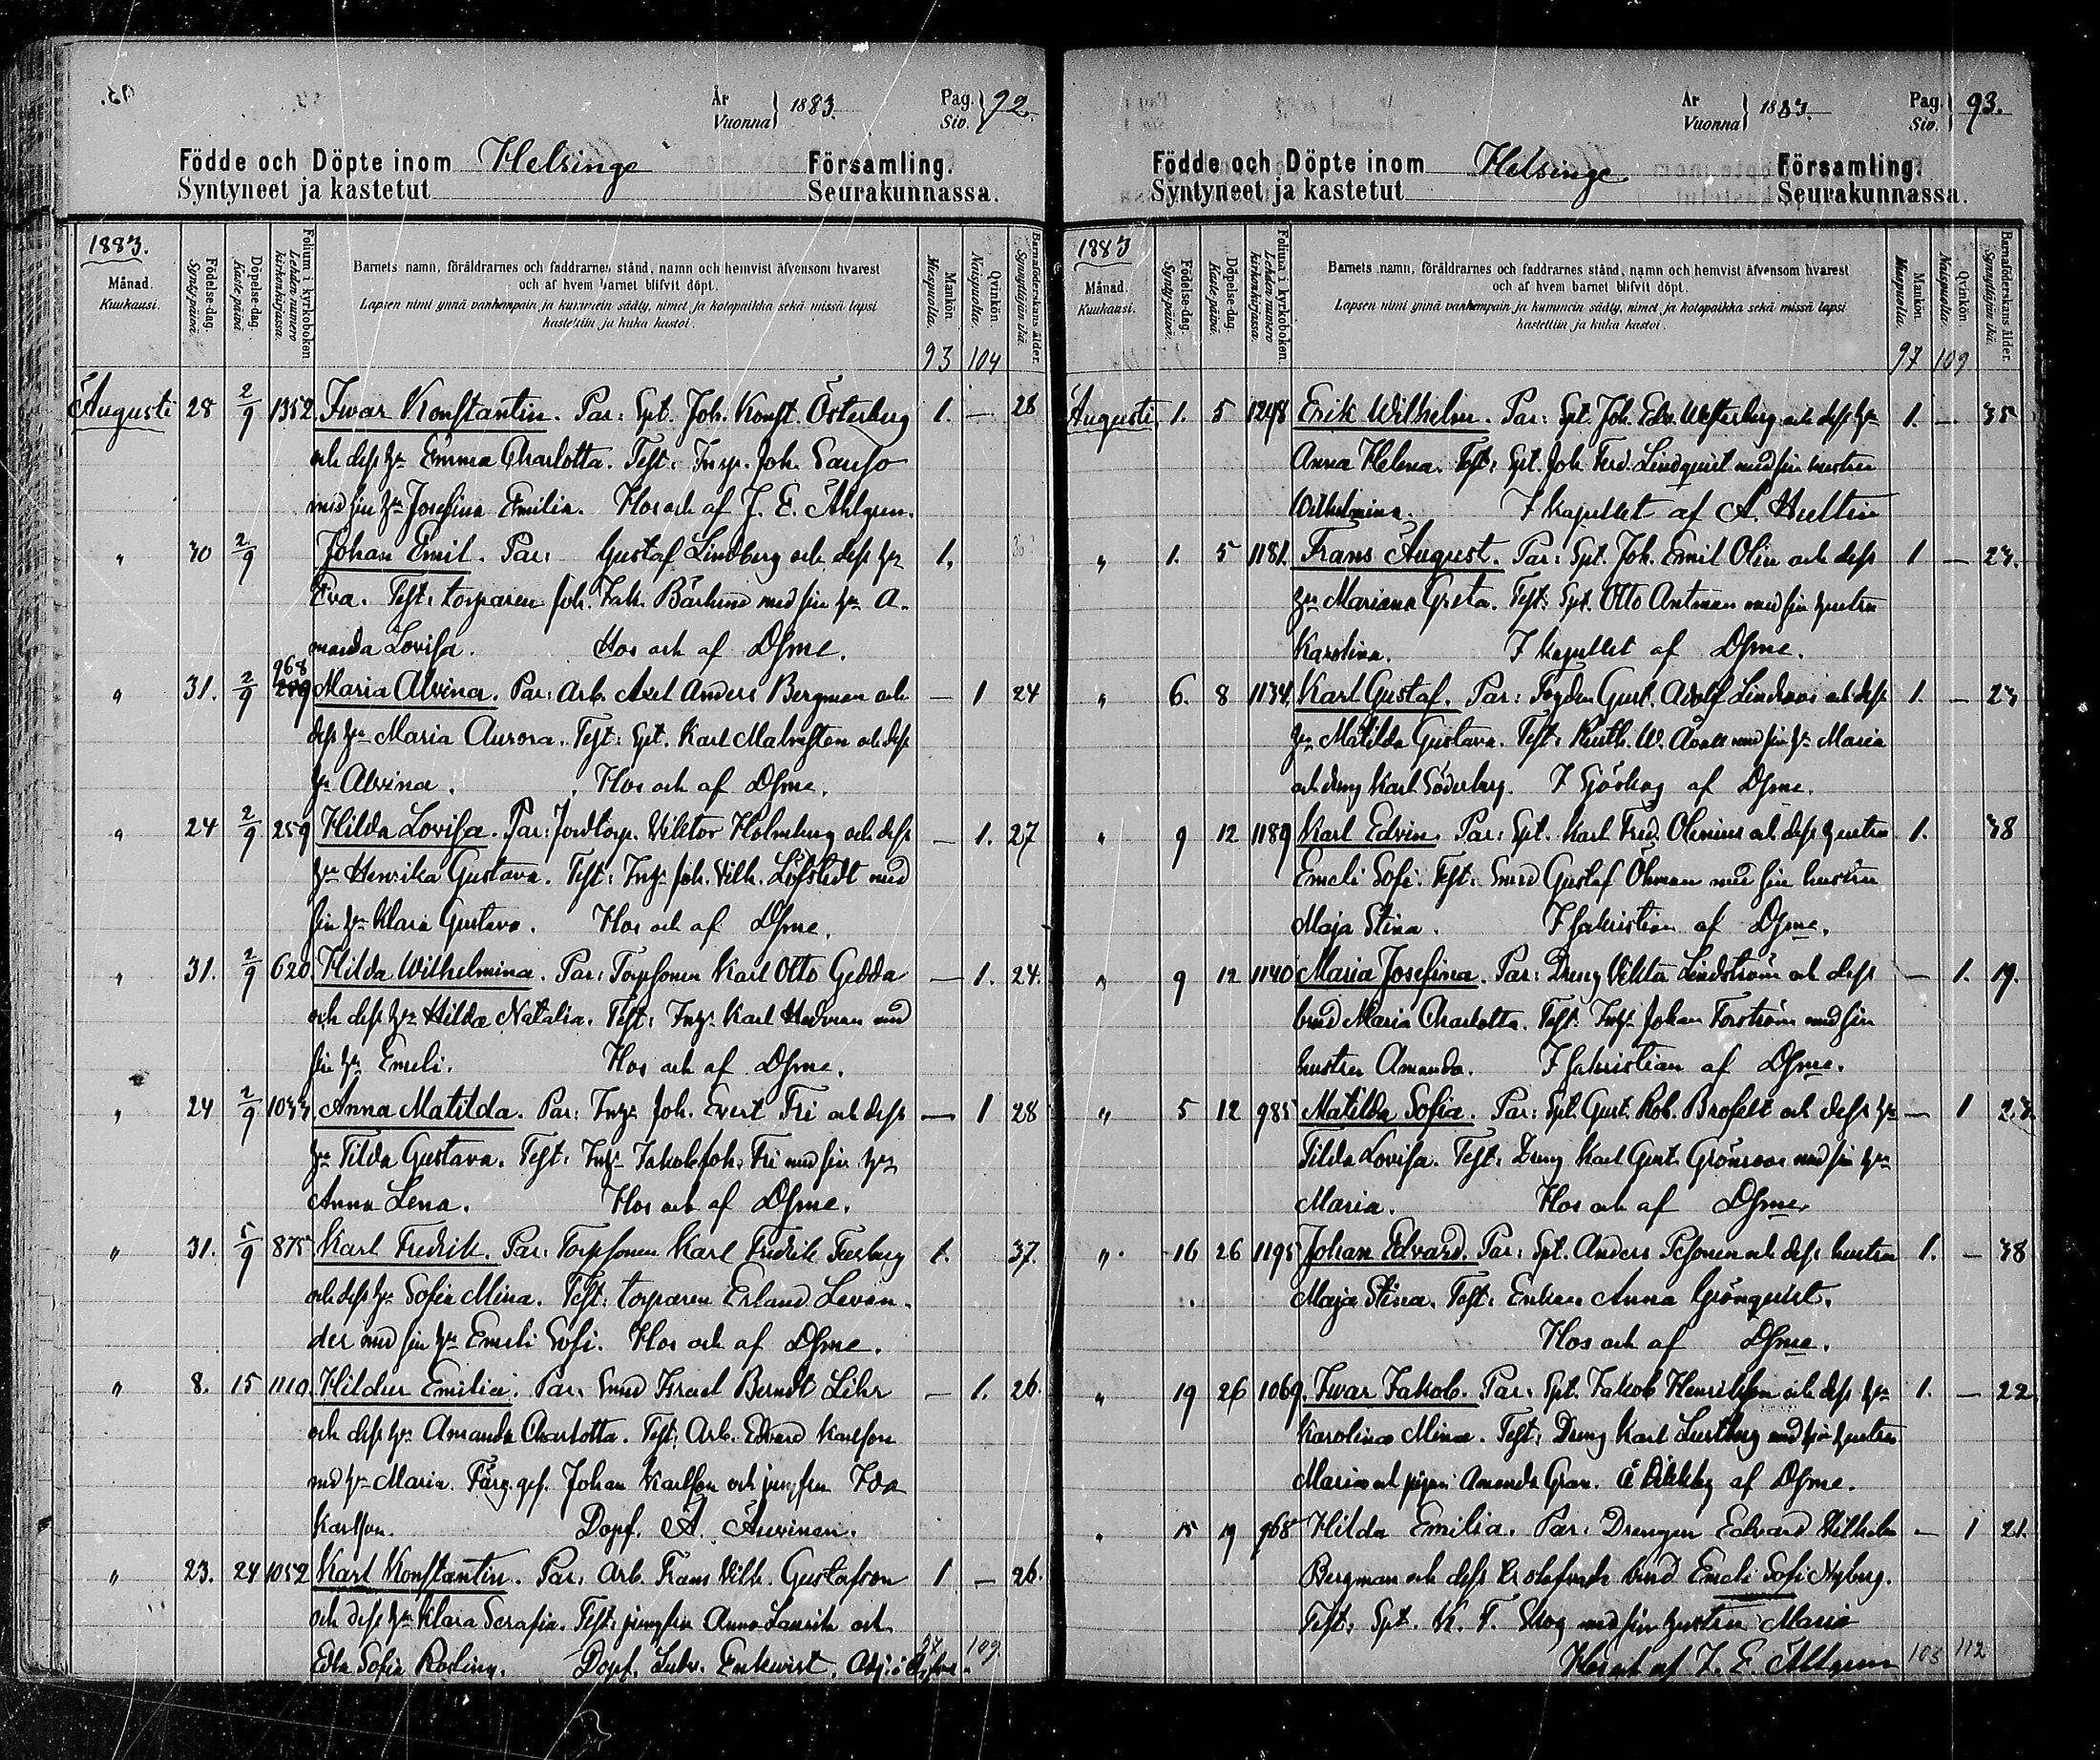 År
Vuonna 1883.
Pag.
Siv. 92.
Födde och Döpte inom Helsinge Församling.
Syntyneet ja kastetut Seurakunnassa.
1883.
Månad.
Kuukausi.
Födelse-dag.
Syntypäivä.
Döpelse-dag.
Kaste-päivä.
Folium i kyrkoboken.
Lehden numero kirkonkirjassa.
Barnets namn, föräldrarnes och faddrarnes stånd, namn och hemvist äfvensom hvarest
och af hvem barnet blifvit döpt.
Lapsen nimi ynnä vanhempain ja kummein sääty, nimet ja kotopaikka sekä missä lapsi
kastettiin ja kuka kastoi.
Mankön.
Miespuolia.
Qvinkön.
Naispuolia.
Barnaföderskans ålder.
Synnyttäjän ikä.
93 104
Augusti 28 2/9 1352. Ivar Konstantin. Par: Spt. Joh. Konst. Österberg 1. — 28
och dess hu Emma Charlotta. Test: Insp. Joh.
med sin hu Josefina Emilia. Hos och af J. E. Ahlgren.
" 30 2/9 Johan Emil. Par: Gustaf Lindberg och dess hu 1.
Eva. Test: torparen Joh. Fab. Bärlund med sin hu A-
manda Lovisa. Hos och af Dsme.
" 31. 2/9 968 Maria Alvina. Par: Arb. Axel Anders Bergman och — 1 24
dess hu Maria Aurora. Test: Spt. Karl Malmsten och dess
hu Alvina. Hos och af Dsme.
" 24 2/9 259 Hilda Lovisa. Par: Jordtorp. Viktor Holmberg och dess — 1. 27
hu Henrika Gustava. Test: Inhs Joh. Vilh. Löfstedt med
sin hu Maria Gustava. Hos och af Dsme.
" 31. 2/9 620. Hilda Wilhelmina. Par: Torpsonen Karl Otto Gedda — 1. 24.
och dess hu Hilda Natalia. Test: Inhs Karl Hedman med
sin hu Emeli. Hos och af Dsme.
" 24 2/9 1033 Anna Matilda. Par: Inhs Joh. Evert Fri och dess — 1 28
hu Tilda Gustava. Test: Inhs Jakob Joh. Fri med sin hu
Anna Lena. Hos och af Dsme.
" 31. 5/9 875 Karl Fredrik. Par: Torpsonen Karl Fredrik Forsberg 1. 37.
och dess hu Sofia Mina. Test: torparen Erland Levan-
der med sin hu Emeli Sofi. Hos och af Dsme.
" 8. 15 1110. Hildur Emilia. Par: Smed Israel Berndt Lihr — 1. 26.
och dess hu Amanda Charlotta. Test: Arb. Edvard Karlson
med hu Maria. Färg.ges. Johan Karlson och jungfru Ida
Karlson. Döpt. A. Auvinen.
" 23. 24 1052 Karl Konstantin. Par: Arb. Frans Vilh. Gustafson 1 — 26.
och dess hu Klara Serafia. Test: jungfru Anna Laurin och
Edla Sofia Rosling. Döpt. Ludv. Enkvist. Adj.
97 109.
År
Vuonna 1883.
Pag.
Siv. 93.
Födde och Döpte inom Helsinge Församling.
Syntyneet ja kastetut Seurakunnassa.
1883
Månad.
Kuukausi.
Födelse-dag.
Syntypäivä.
Döpelse-dag.
Kaste-päivä.
Folium i kyrkoboken.
Lehden numero kirkonkirjassa.
Barnets namn, föräldrarnes och faddrarnes stånd, namn och hemvist äfvensom hvarest
och af hvem barnet blifvit döpt.
Lapsen nimi ynnä vanhempain ja kummein sääty, nimet ja kotopaikka sekä missä lapsi
kastettiin ja kuka kastoi.
Mankön.
Miespuolia.
Qvinkön.
Naispuolia.
Barnaföderskans ålder.
Synnyttäjän ikä.
97 109
Augusti. 1. 5 1248 Erik Wilhelm. Par: Spt. Joh. Edv. Westerberg och dess hu 1. — 35
Anna Helena. Test: Spt. Joh. Ferd. Lindqvist med sin hustru
Wilhelmina. I kapellet af A. Hultin
" 1. 5 1181. Frans August. Par: Spt. Joh. Emil Olin och dess 1 — 23.
hu Mariana Greta. Test: Spt. Otto Antman med sin hustru
Karolina. I kapellet af Dsme.
" 6. 8 1134. Karl Gustaf. Par: Fogden Gust. Adolf Lindroos och dess 1. — 23
hu Matilda Gustava. Test: W. Åvall med sin hu Maria
och dreng Karl Söderberg. I Sjöskog af Dsme.
" 9 12 1189 Karl Edvin. Par: Spt. Karl Fred. Olenius och dess hustru 1. 38
Emeli Sofi. Test: Smed Gustaf Öhman med sin hustru
Maja Stina. I sakristian af Dsme.
" 9 12 1140 Maria Josefina. Par: Dreng Viktor Lindström och dess — 1. 19.
brud Maria Charlotta. Test: Inhs Johan Forström med sin
hustru Amanda. I sakristian af Dsme.
" 5 12 985 Matilda Sofia. Par: Spt. Gust. Rob. Brofelt och dess hu — 1 23.
Tilda Lovisa. Test: Dreng Karl Gust. Grönroos med sin hu
Maria. Hos och af Dsme.
" 16 26 1195 Johan Edvard. Par: Spt. Anders och dess hustru 1. — 38
Maja Stina. Test: Enkan Anna Grönqvist.
Hos och af Dsme.
" 19 26 1069. Ivar Jakob. Par: Spt. Jakob Henrikson och dess hu 1. — 22.
Karolina Mina. Test: Dreng Karl Lustberg med sin hustru
Maria och pigan Amanda Gran. Å Dickby af Dsme.
" 15 19 968 Hilda Emilia. Par: Drengen Edvard Vilhelm — 1 21.
Bergman och dess trolofvade brud Emeli Sofi Nyberg.
Test: Spt. K. F. Skog med sin hustru Maria
Hos och af J. E. Ahlgren 103 112